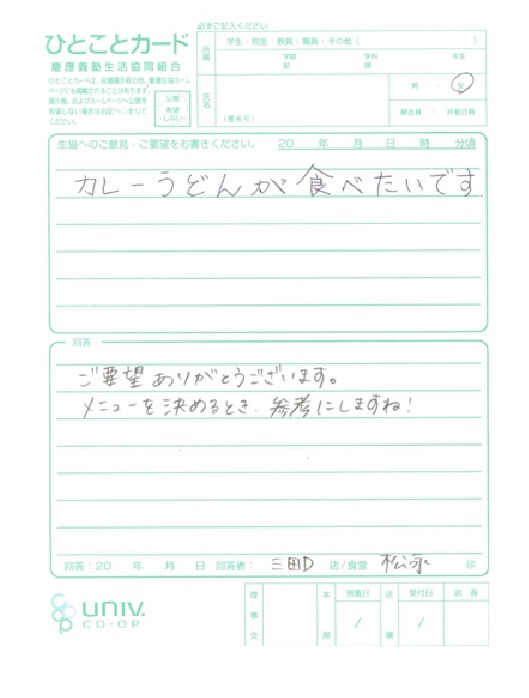 必ずご記入ください
ひとことカード
慶應義塾生活協同組合
ひとことカードは、店舗掲示板の他、慶應生協ホーム
ページにも掲載されることがあります。
掲示板、およびホームページへ公開を
希望しない場合は右記へ○をして
ください。
公開
希望
しない
所属
学生・院生・教員・職員・その他（　　　）
学部　学科　年生
部　課
氏名
（匿名可）
男・女
組合員・非組合員
生協へのご意見・ご要望をお書きください。 20　年　月　日　時　分頃
カレーうどんが食べたいです
回答
ご要望ありがとうございます。
メニューを決めるとき、参考にしますね!
回答：20　年　月　日 回答者： 三田D 店/食堂 松永 ㊞
UNIV.
CO-OP
理事会 本部 到着日 / 店舗 受付日 / 店長